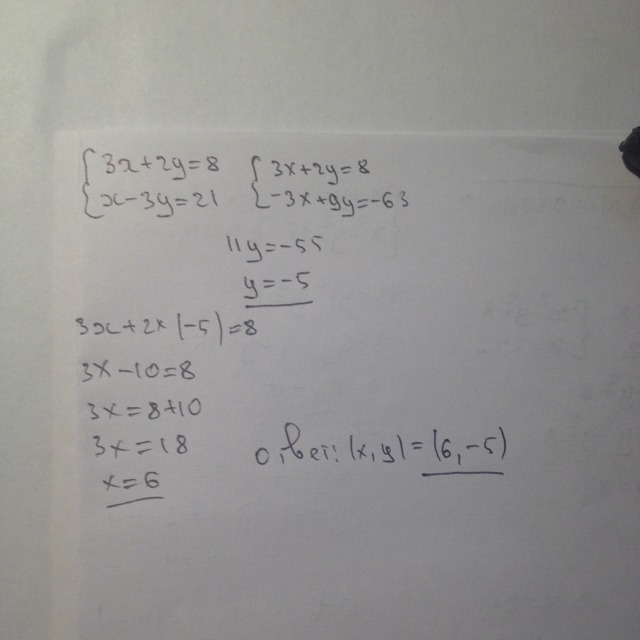 {3x+2y=8 {3x+2y=8
{x-3y=21 {-3x+9y=-63
11y=-55
y=-5
3x+2×(-5)=8
3x-10=8
3x=8+10
3x=18
x=6
ответ: (x,y)=(6,-5)